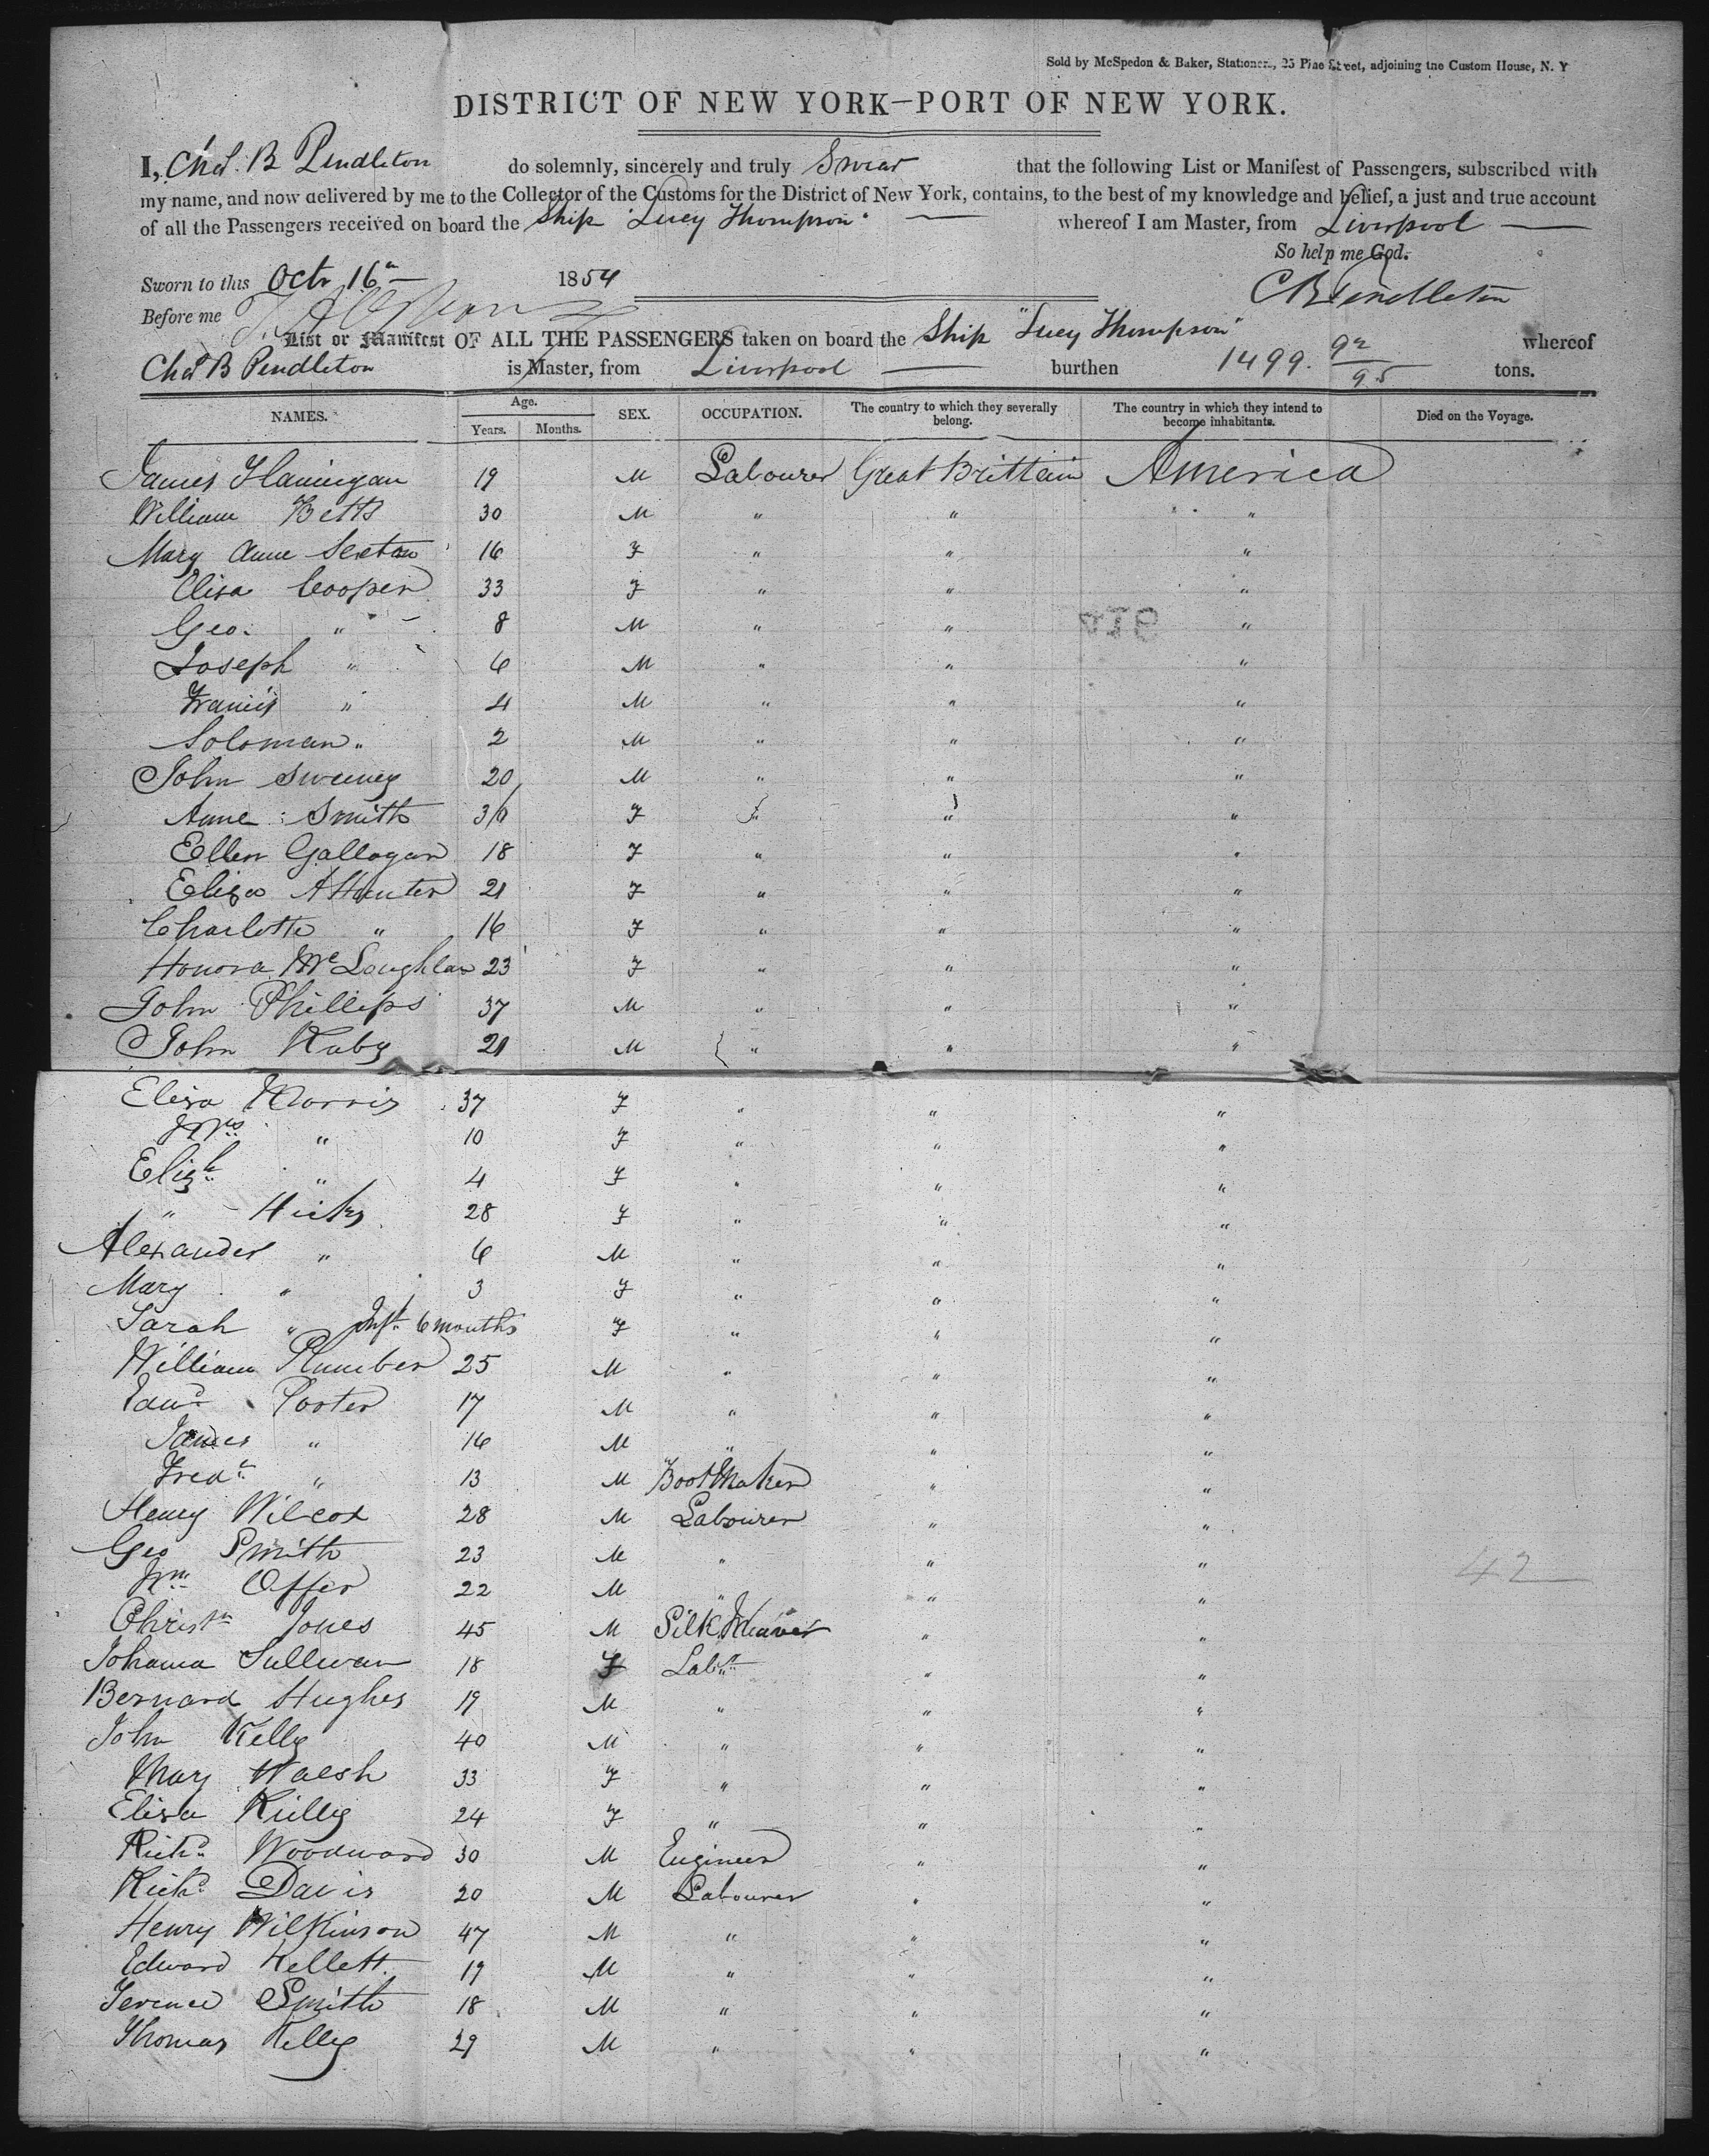 Sold by McSpedon & Baker, Stationers, 25 Pine Street, adjoining the Custom House, N. Y
DISTRICT OF NEW YORK—PORT OF NEW YORK.
I, Chas. B Pendleton do solemnly, sincerely and truly Swear that the following List or Manifest of Passengers, subscribed with
my name, and now delivered by me to the Collector of the Customs for the District of New York, contains, to the best of my knowledge and belief, a just and true account
of all the Passengers received on board the Ship "Lucy Thompson" whereof I am Master, from Liverpool
So help me God.
Sworn to this Octr 16th 1854 CB Pendleton
Before me
List or Manifest OF ALL THE PASSENGERS taken on board the Ship "Lucy Thompson" whereof
Chas B Pendleton is Master, from Liverpool burthen 1499. 92/95 tons.
NAMES. Age. Years. Months. SEX. OCCUPATION. The country to which they severally belong. The country in which they intend to become inhabitants. Died on the Voyage.
James Flannigan 19 M Labourer Great Brittain America
William Betts 30 M " " "
Mary Anne Sexton 16 F " " "
Elisa Cooper 33 F " " "
Geo. " 8 M " " "
Joseph " 6 M " " "
Francis " 4 M " " "
Soloman " 2 M " " "
John Sweeney 20 M " " "
Anne Smith 36 F " " "
Ellen Gallogan 18 F " " "
Eliza A Hunter 21 F " " "
Charlotte " 16 F " " "
Honora McLoughlan 23 F " " "
John Phillips 37 M " " "
John Raby 21 M " " "
Elisa Morris 37 F " " "
" 10 F " " "
Elizh " 4 F " " "
" Hicks 28 F " " "
Alexander " 6 M " " "
Mary " 3 F " " "
Sarah " Inft 6 months F " " "
William Plumber 25 M " " "
Edwd Porter 17 M " " "
James " 16 M " " "
Fredk " 13 M Boot Maker " "
Henry Wilcox 28 M Labourer " "
Geo Smith 23 M " " "
Wm Offer 22 M " " "
42
Christn Jones 45 M Silk Weaver " "
Johanna Sullivan 18 F Labr " "
Bernard Hughes 19 M " " "
John Kelly 40 M " " "
Mary Walsh 33 F " " "
Elisa Reilly 24 F " " "
Richd Woodward 30 M Engineer " "
Richd Davis 20 M Labourer " "
Henry Wilkinson 47 M " " "
Edward Kellett 19 M " " "
Terence Smith 18 M " " "
Thomas Kelly 29 M " " "